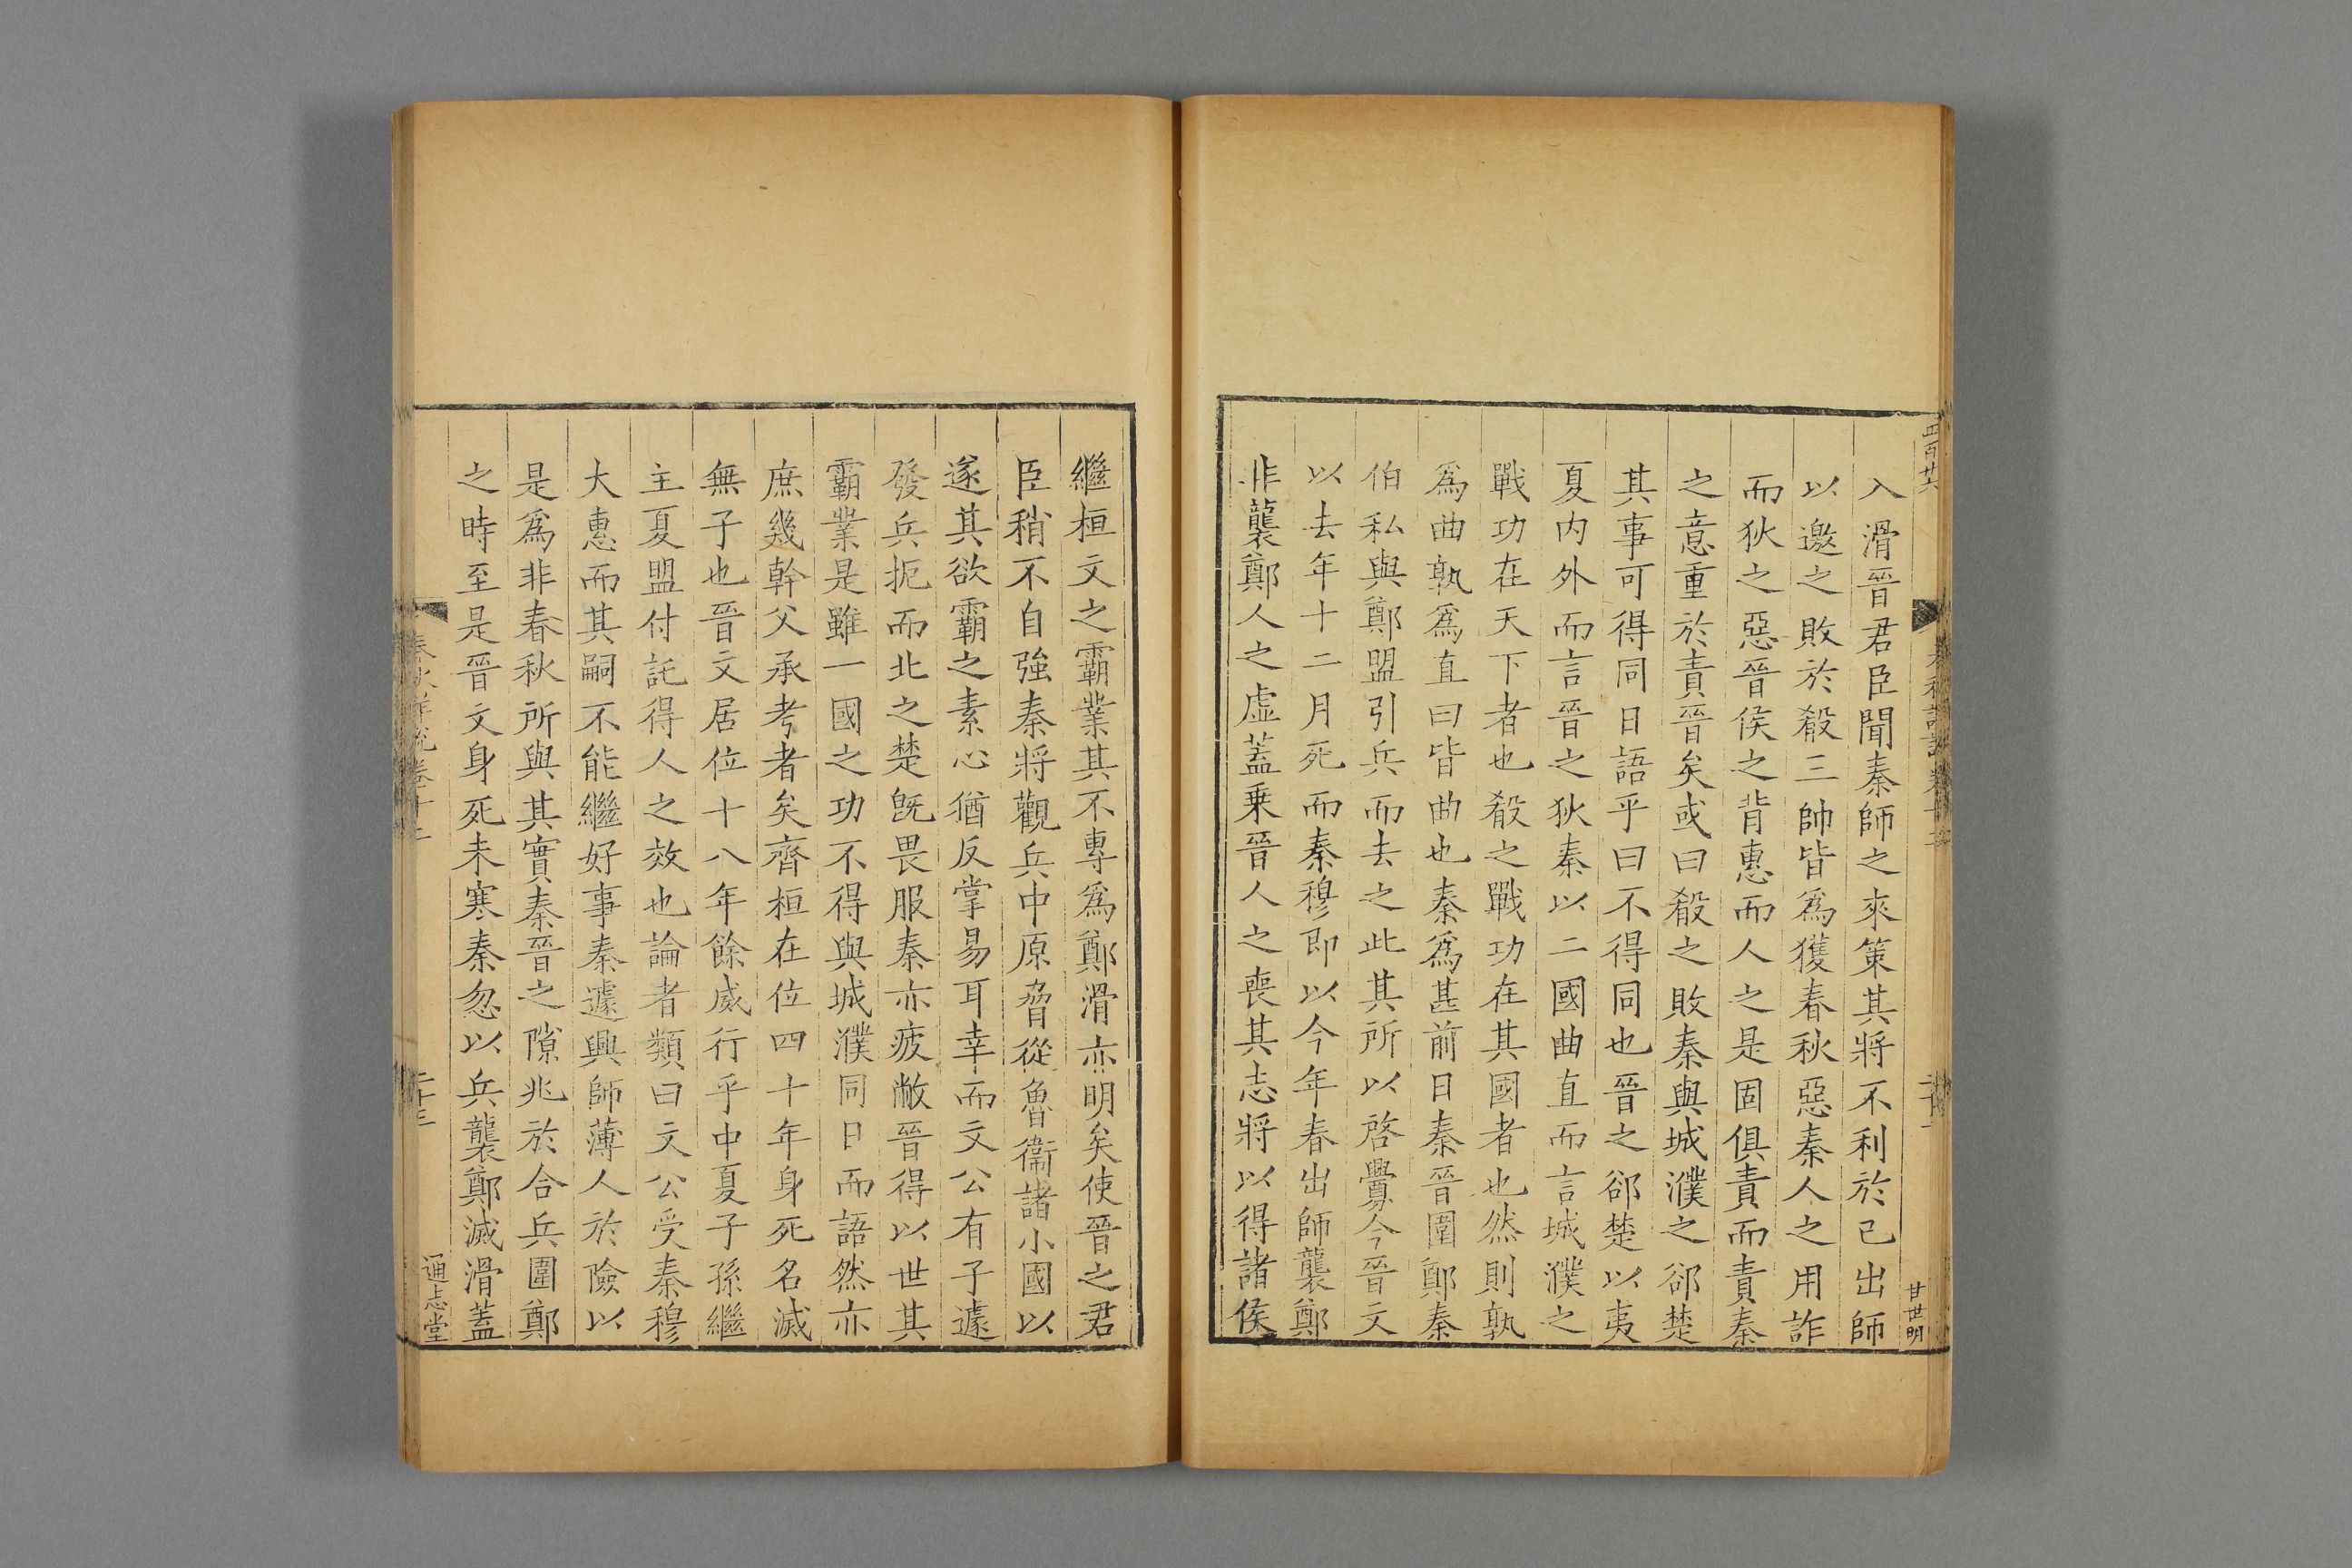 四百廿六
甘世明
入滑晉君臣聞秦師之來策其將不利於已出師
以邀之敗於殽三帥皆爲獲春秋惡秦人之用詐
而狄之惡晉侯之背惠而人之是固俱責而責秦
之意重於責晉矣或曰殽之敗秦與城濮之郤楚
其事可得同日語乎曰不得同也晉之郤楚以夷
夏内外而言晉之狄秦以二國曲直而言城濮之
戰功在天下者也殽之戰功在其國者也然則孰
爲曲孰爲直曰皆曲也秦爲甚前日秦晉圍鄭秦
伯私與鄭盟引兵而去之此其所以啓釁今晉文
以去年十二月死而秦穆即以今年春出師襲鄭
非襲鄭人之虛蓋乗晉人之喪其志將以得諸侯
繼桓文之霸業其不專爲鄭滑亦明矣使晉之君
臣稍不自強秦將觀兵中原脅從魯衞諸小國以
遂其欲霸之素心猶反掌易耳幸而文公有子遽
發兵扼而北之楚旣畏服秦亦疲敝晉得以世其
霸業是雖一國之功不得與城濮同日而語然亦
庶幾幹父承考者矣齊桓在位四十年身死名滅
無子也晉文居位十八年餘威行乎中夏子孫繼
主夏盟付託得人之效也論者類曰文公受秦穆
大惠而其嗣不能繼好事秦遽興師薄人於險以
是爲非春秋所與其實秦晉之隙兆於合兵圍鄭
之時至是晉文身死未寒秦忽以兵襲鄭滅滑蓋
春秋詳說卷十二
二十三
通志堂